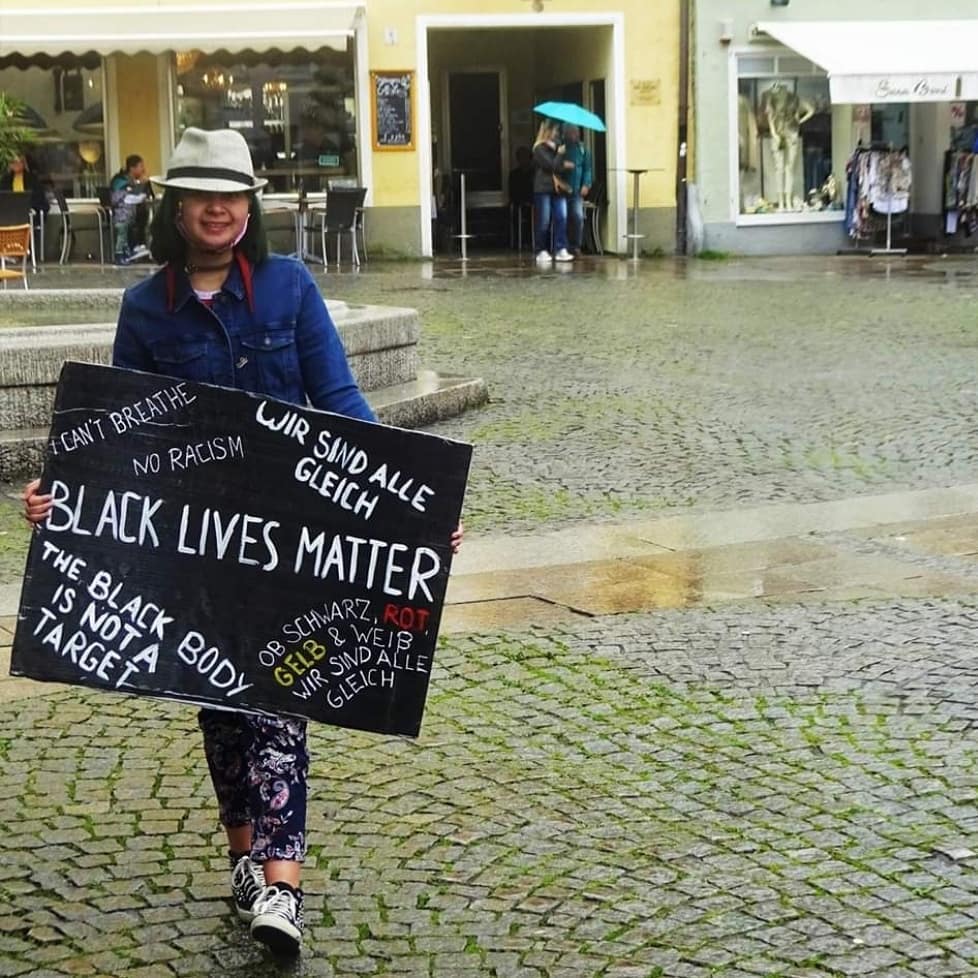 I CAN'T BREATHE
NO RACISM
WIR SIND ALLE
GLEICH
BLACK LIVES MATTER
THE BLACK BODY
IS NOT A
TARGET
OB SCHWARZ, ROT,
GELB & WEIß
WIR SIND ALLE
GLEICH